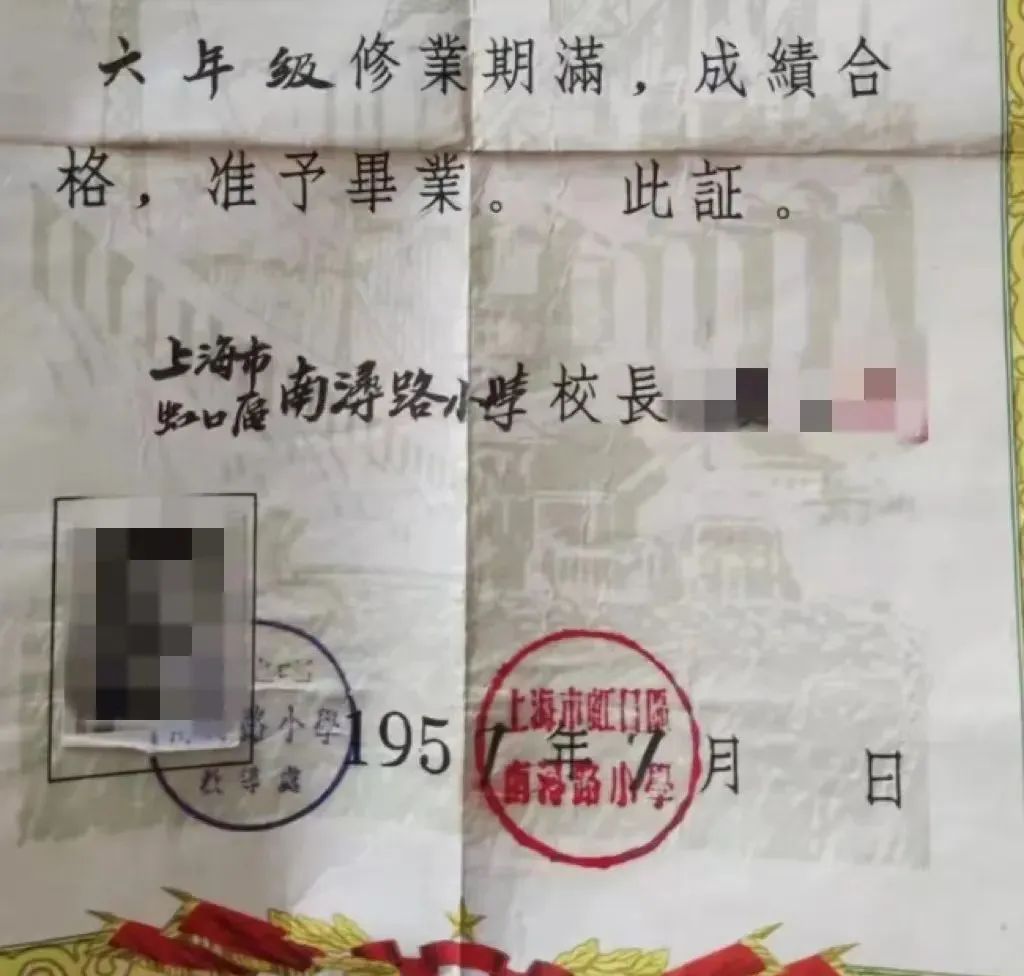 六年级修業期滿，成績合
格，准予畢業。 此証。
上海市
虹口區
南潯路小学校長
上海市虹口區
南潯路小學
路小學
教導處
1957年7月 日